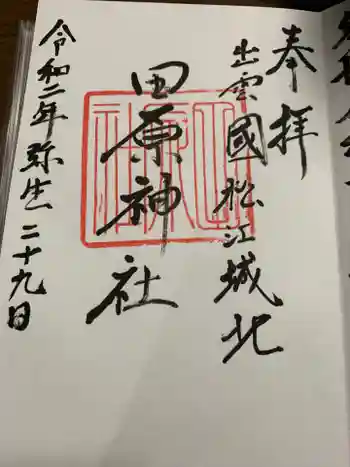 奉拝
出雲國松江城北
田原神社
令和二年弥生二十九日